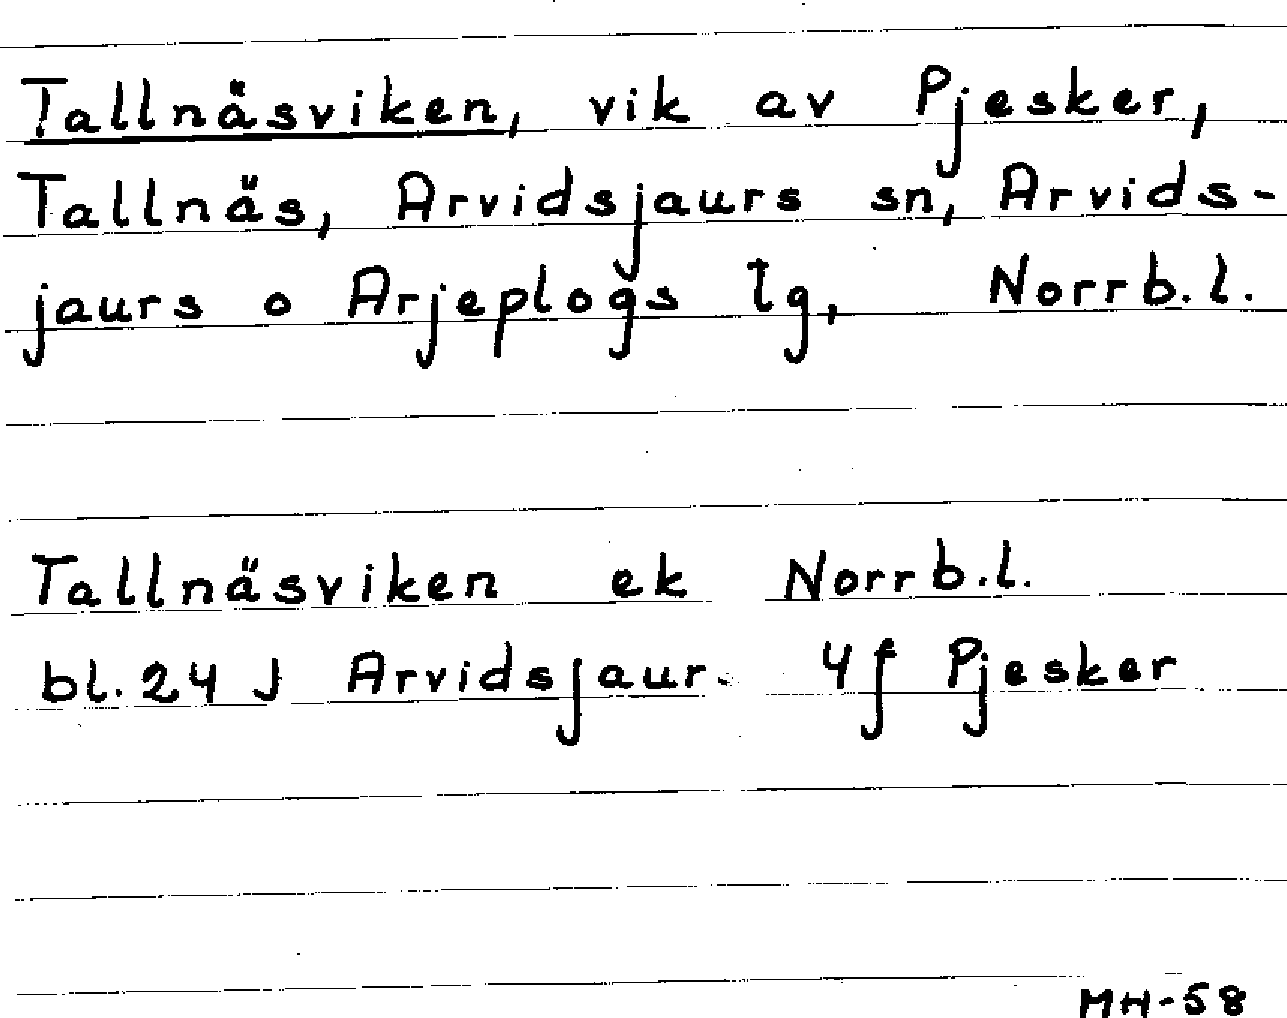 Tallnäsviken, vik av Pjesker,
Tallnäs, Arvidsjaurs sn, Arvids-
jaurs o Arjeplogs tg, Norrb.l.
Tallnäsviken ek Norrb.l.
bl.24 J Arvidsjaur. 4f Pjesker
MH-58